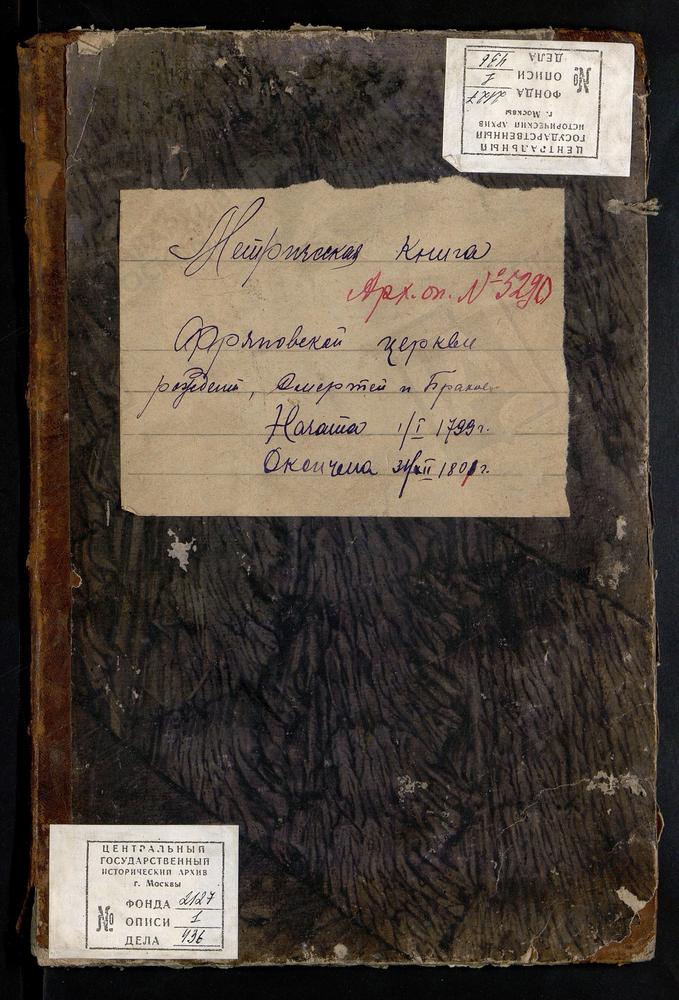 ЦЕНТРАЛЬНЫЙ
ГОСУДАРСТВЕННЫЙ
ИСТОРИЧЕСКИЙ АРХИВ
г. Москвы
№
ФОНДА 2127
ОПИСИ 1
ДЕЛА 436
Метрическая Книга
Арх. оп. № 5290
Фряновской церкви
рождений, Смертей и Браков
Начата 1/I 1799 г.
Окончена 31/XII 1801 г.
ЦЕНТРАЛЬНЫЙ
ГОСУДАРСТВЕННЫЙ
ИСТОРИЧЕСКИЙ АРХИВ
г. Москвы
№
ФОНДА 2127
ОПИСИ 1
ДЕЛА 436